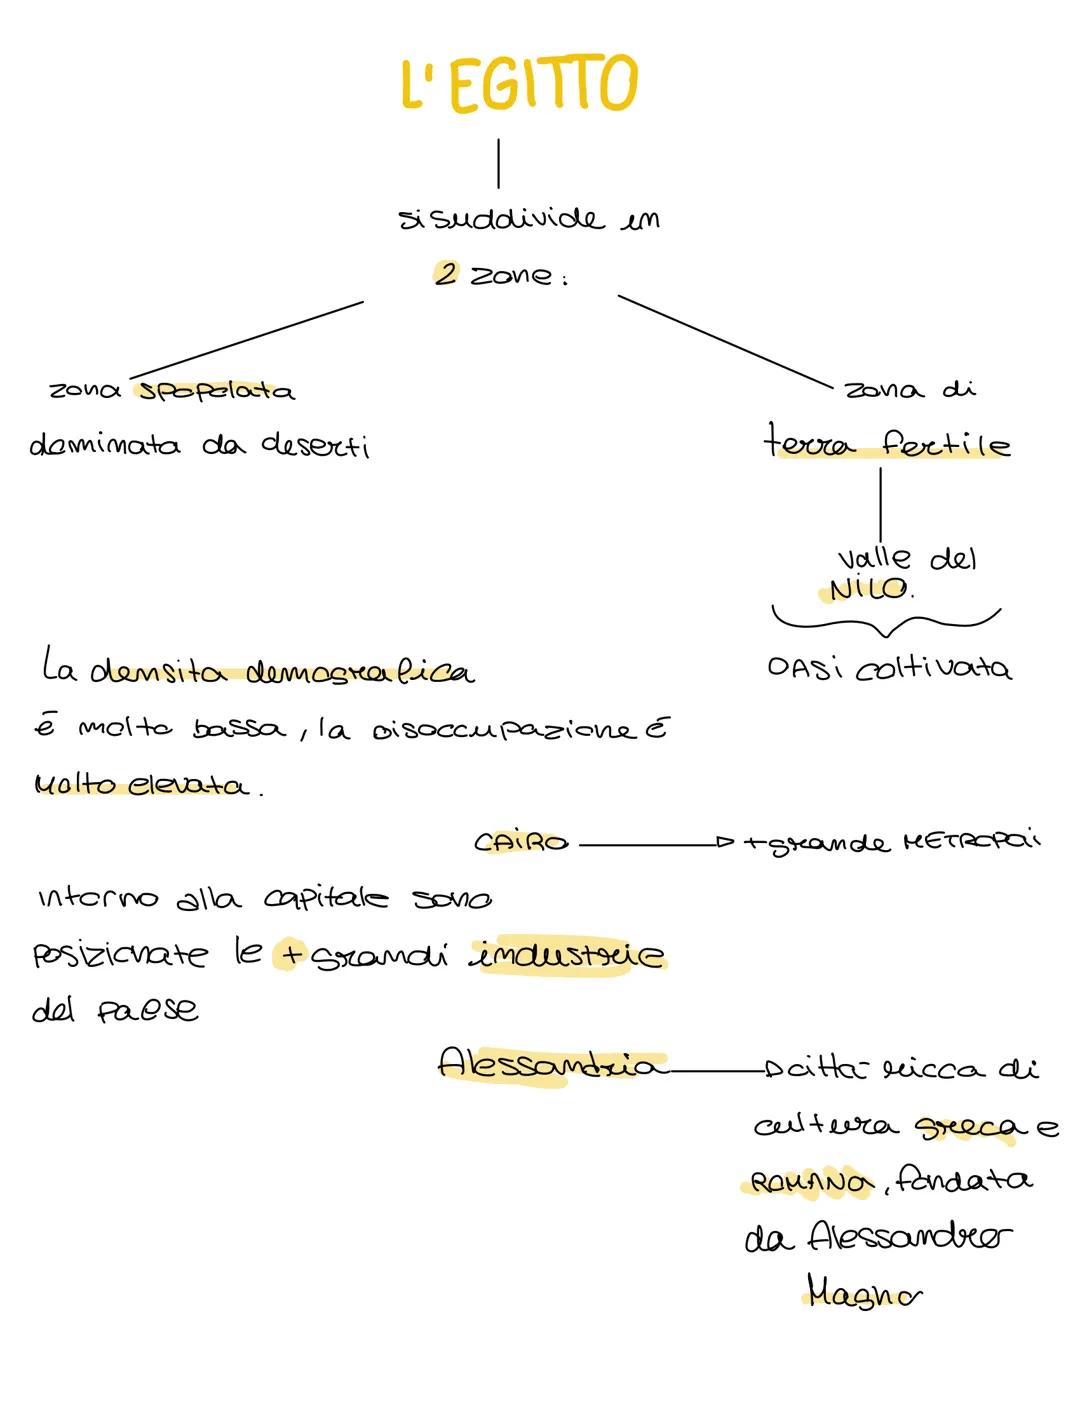 L'EGITTO
si suddivide in
2 zone:
zona spopolata
dominata da deserti
zona di
terra fertile
valle del
NILO.
OASI coltivata
La densita demografica
é molto bassa, la disoccupazione é
Molto elevata.
CAIRO + grande METROPOI
intorno alla capitale sono
posizionate le + grandi industrie
del paese
Alessandria città ricca di
cultura greca e
ROMANA, fondata
da Alessandro
Magno